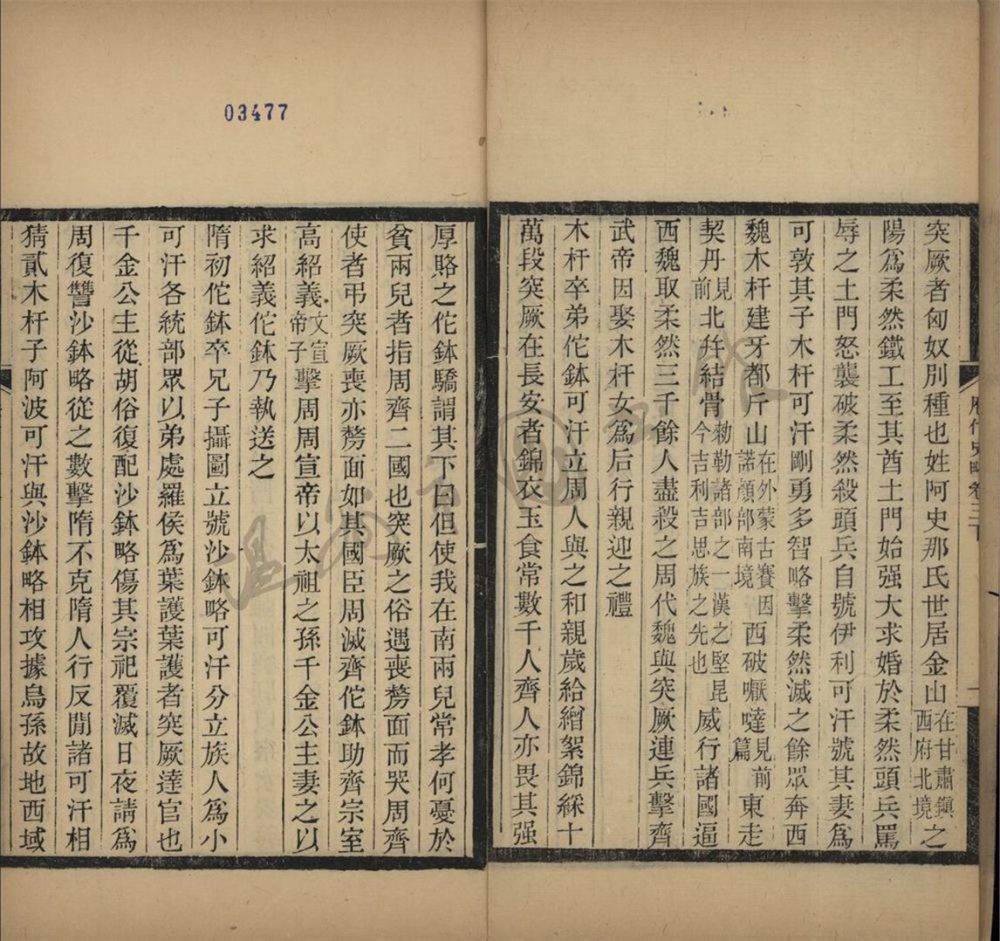 突厥者匈奴別種也姓阿史那氏世居金山在甘肅鎭西府北境之
陽爲柔然鐵工至其酋土門始强大求婚於柔然頭兵罵
辱之土門怒襲破柔然殺頭兵自號伊利可汗號其妻爲
可敦其子木杆可汗剛勇多智略擊柔然滅之餘眾奔西
魏木杆建牙都斤山在外蒙古賽因諾顏部南境西破嚈噠見前篇東走
契丹見前北幷結骨勑勒諸部之一漢之堅昆今吉利吉思族之先也威行諸國逼
西魏取柔然三千餘人盡殺之周代魏與突厥連兵擊齊
武帝因娶木杆女爲后行親迎之禮
木杆卒弟佗鉢可汗立周人與之和親歲給繒絮錦綵十
萬段突厥在長安者錦衣玉食常數千人齊人亦畏其强
厚賂之佗鉢驕謂其下曰但使我在南兩兒常孝何憂於
貧兩兒者指周齊二國也突厥之俗遇喪剺面而哭周齊
使者弔突厥喪亦剺面如其國臣周滅齊佗鉢助齊宗室
高紹義文宣帝子擊周周宣帝以太祖之孫千金公主妻之以
求紹義佗鉢乃執送之
隋初佗鉢卒兄子攝圖立號沙鉢略可汗分立族人爲小
可汗各統部眾以弟處羅侯爲葉護葉護者突厥達官也
千金公主從胡俗復配沙鉢略傷其宗祀覆滅日夜請爲
周復讐沙鉢略從之數擊隋不克隋人行反閒諸可汗相
猜貳木杆子阿波可汗與沙鉢略相攻據烏孫故地西域
03477